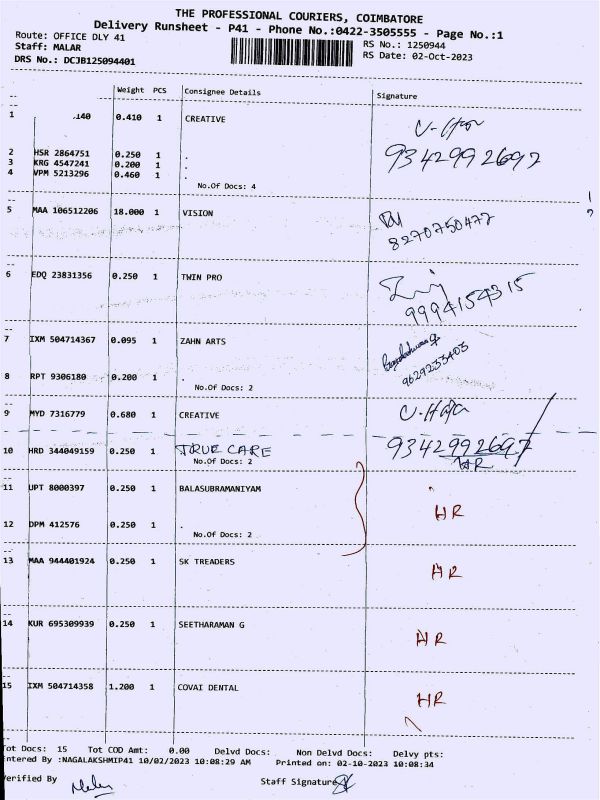 THE PROFESSIONAL COURIERS, COIMBATORE
Delivery Runsheet - P41 - Phone No.:0422-3505555 - Page No.:1
Route: OFFICE DLY 41
RS No.: 1250944
Staff: MALAR
RS Date: 02-Oct-2023
DRS No.: DCJB125094401
Weight PCS Consignee Details Signature
1 .140 0.410 1 CREATIVE
2 HSR 2864751 0.250 1 . 9342992697
3 KRG 4547241 0.200 1 .
4 VPM 5213296 0.460 1 .
No.Of Docs: 4
5 MAA 106512206 18.000 1 VISION
8270750477
6 EDQ 23831356 0.250 1 TWIN PRO
9994154315
7 IXM 504714367 0.095 1 ZAHN ARTS
9629233403
8 RPT 9306180 0.200 1 .
No.Of Docs: 2
9 MYD 7316779 0.680 1 CREATIVE
10 HRD 344049159 0.250 1 TRUE CARE 9342992697
No.Of Docs: 2 HR
11 UPT 8000397 0.250 1 BALASUBRAMANIYAM
HR
12 DPM 412576 0.250 1 .
No.Of Docs: 2
13 MAA 944401924 0.250 1 SK TREADERS HR
14 KUR 695309939 0.250 1 SEETHARAMAN G HR
15 IXM 504714358 1.200 1 COVAI DENTAL HR
Tot Docs: 15 Tot COD Amt: 0.00 Delvd Docs: Non Delvd Docs: Delvy pts:
Entered By :NAGALAKSHMIP41 10/02/2023 10:08:29 AM Printed on: 02-10-2023 10:08:34
Verified By Staff Signature